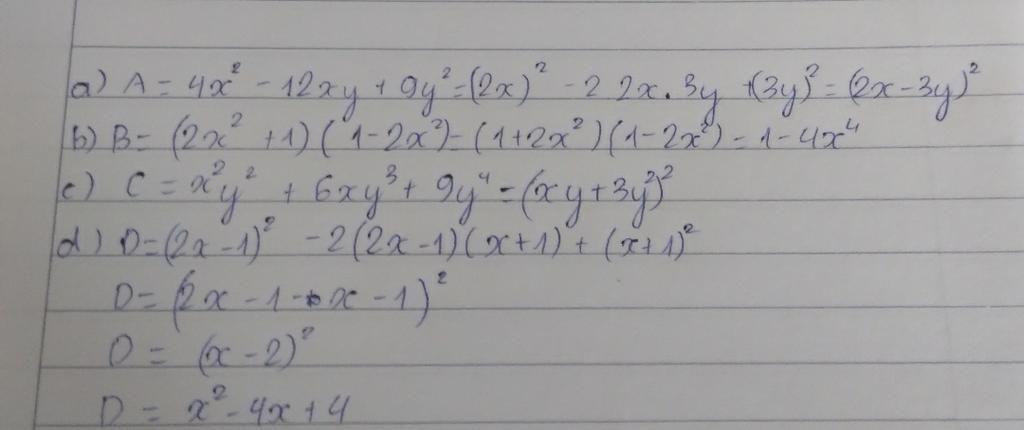 a) A = 4x² - 12xy + 9y² = (2x)² - 2 2x . 3y + (3y)² = (2x - 3y)²
b) B = (2x² + 1) ( 1 - 2x²) = (1 + 2x²) (1 - 2x²) = 1 - 4x⁴
c) C = x²y² + 6xy³ + 9y⁴ = (xy + 3y²)²
d) D = (2x - 1)² - 2(2x - 1)(x + 1) + (x + 1)²
D = (2x - 1 - x - 1)²
D = (x - 2)²
D = x² - 4x + 4